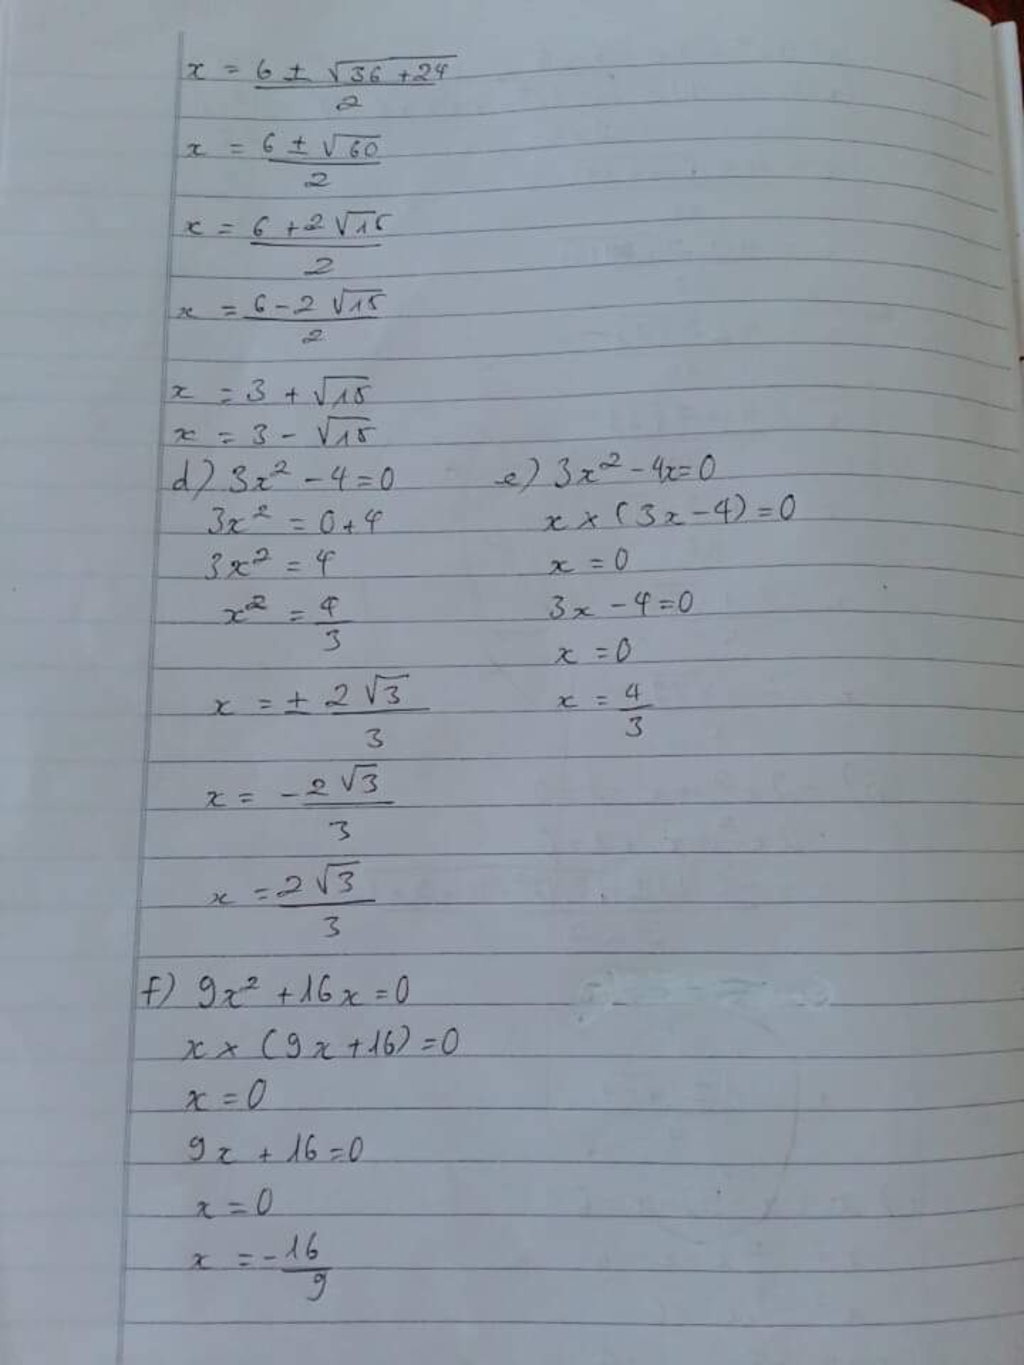 x = 6 ± √36 + 24
2
x = 6 ± √60
2
x = 6 + 2 √15
2
x = 6 - 2 √15
2
x = 3 + √15
x = 3 - √15
d) 3x² - 4 = 0
3x² = 0 + 4
3x² = 4
x² = 4
3
x = ± 2 √3
3
x = - 2 √3
3
x = 2 √3
3
e) 3x² - 4x = 0
x × (3x - 4) = 0
x = 0
3x - 4 = 0
x = 0
x = 4
3
f) 9x² + 16x = 0
x × (9x + 16) = 0
x = 0
9x + 16 = 0
x = 0
x = - 16
9